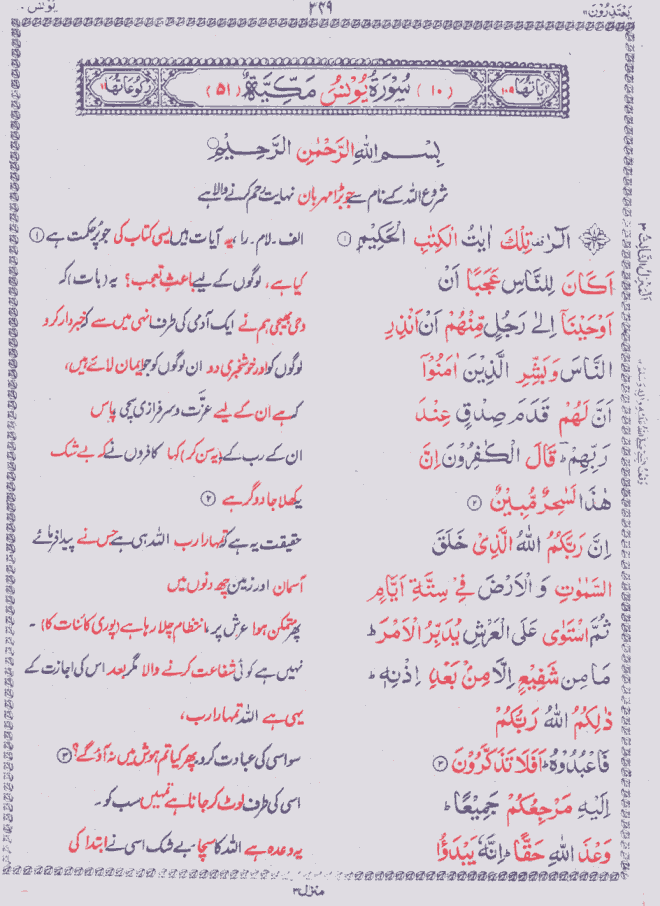 يعتذرون ۱۱ ۲۴۹ يونس ۱۰
اٰيَاتُهَا ۱۰۹ (۱۰) سُوْرَةُ يُوْنُسَ مَكِّيَّةٌ (۵۱) رُكُوْعَاتُهَا ۱۱
بِسْمِ اللهِ الرَّحْمٰنِ الرَّحِيْمِ
شروع اللہ کے نام سے جو بڑا مہربان نہایت رحم کرنے والا ہے
الٓرٰ تِلْكَ اٰيٰتُ الْكِتٰبِ الْحَكِيْمِ ۱ الف۔ لام۔ را، یہ آیات ہیں ایسی کتاب کی جو پُر حکمت ہے ۱
اَكَانَ لِلنَّاسِ عَجَبًا اَنْ کیا ہے، لوگوں کے لیے باعثِ تعجب؟ یہ (بات) کہ
اَوْحَيْنَآ اِلٰى رَجُلٍ مِّنْهُمْ اَنْ اَنْذِرِ وحی بھیجی ہم نے ایک آدمی کی طرف انہی میں سے کہ خبردار کرو
النَّاسَ وَبَشِّرِ الَّذِيْنَ اٰمَنُوْٓا لوگوں کو اور خوشخبری دو ان لوگوں کو جو ایمان لائے ہیں،
اَنَّ لَهُمْ قَدَمَ صِدْقٍ عِنْدَ کہ ہے ان کے لیے عزّت و سرفرازی سچی پاس
رَبِّهِمْ ؕ قَالَ الْكٰفِرُوْنَ اِنَّ ان کے رب کے (یہ سن کر) کہا کافروں نے کہ بے شک
هٰذَا لَسٰحِرٌ مُّبِيْنٌ ۲ یہ کھلا جادوگر ہے ۲
اِنَّ رَبَّكُمُ اللهُ الَّذِيْ خَلَقَ حقیقت یہ ہے کہ تمہارا رب اللہ ہی ہے جس نے پیدا فرمائے
السَّمٰوٰتِ وَ الْاَرْضَ فِيْ سِتَّةِ اَيَّامٍ آسمان اور زمین چھ دنوں میں
ثُمَّ اسْتَوٰى عَلَى الْعَرْشِ يُدَبِّرُ الْاَمْرَ ؕ پھر متمکن ہوا عرش پر، انتظام چلا رہا ہے (پوری کائنات کا)۔
مَا مِنْ شَفِيْعٍ اِلَّا مِنْۢ بَعْدِ اِذْنِهٖ ؕ نہیں ہے کوئی شفاعت کرنے والا مگر بعد اس کی اجازت کے
ذٰلِكُمُ اللهُ رَبُّكُمْ یہی ہے اللہ تمہارا رب،
فَاعْبُدُوْهُ ؕ اَفَلَا تَذَكَّرُوْنَ ۳ سو اسی کی عبادت کرو۔ پھر کیا تم ہوش میں نہ آؤ گے؟ ۳
اِلَيْهِ مَرْجِعُكُمْ جَمِيْعًا ؕ اسی کی طرف لوٹ کر جانا ہے تمہیں سب کو۔
وَعْدَ اللهِ حَقًّا ؕ اِنَّهٗ يَبْدَؤُا یہ وعدہ ہے اللہ کا سچا۔ بے شک اسی نے ابتدا کی
منزل ۳